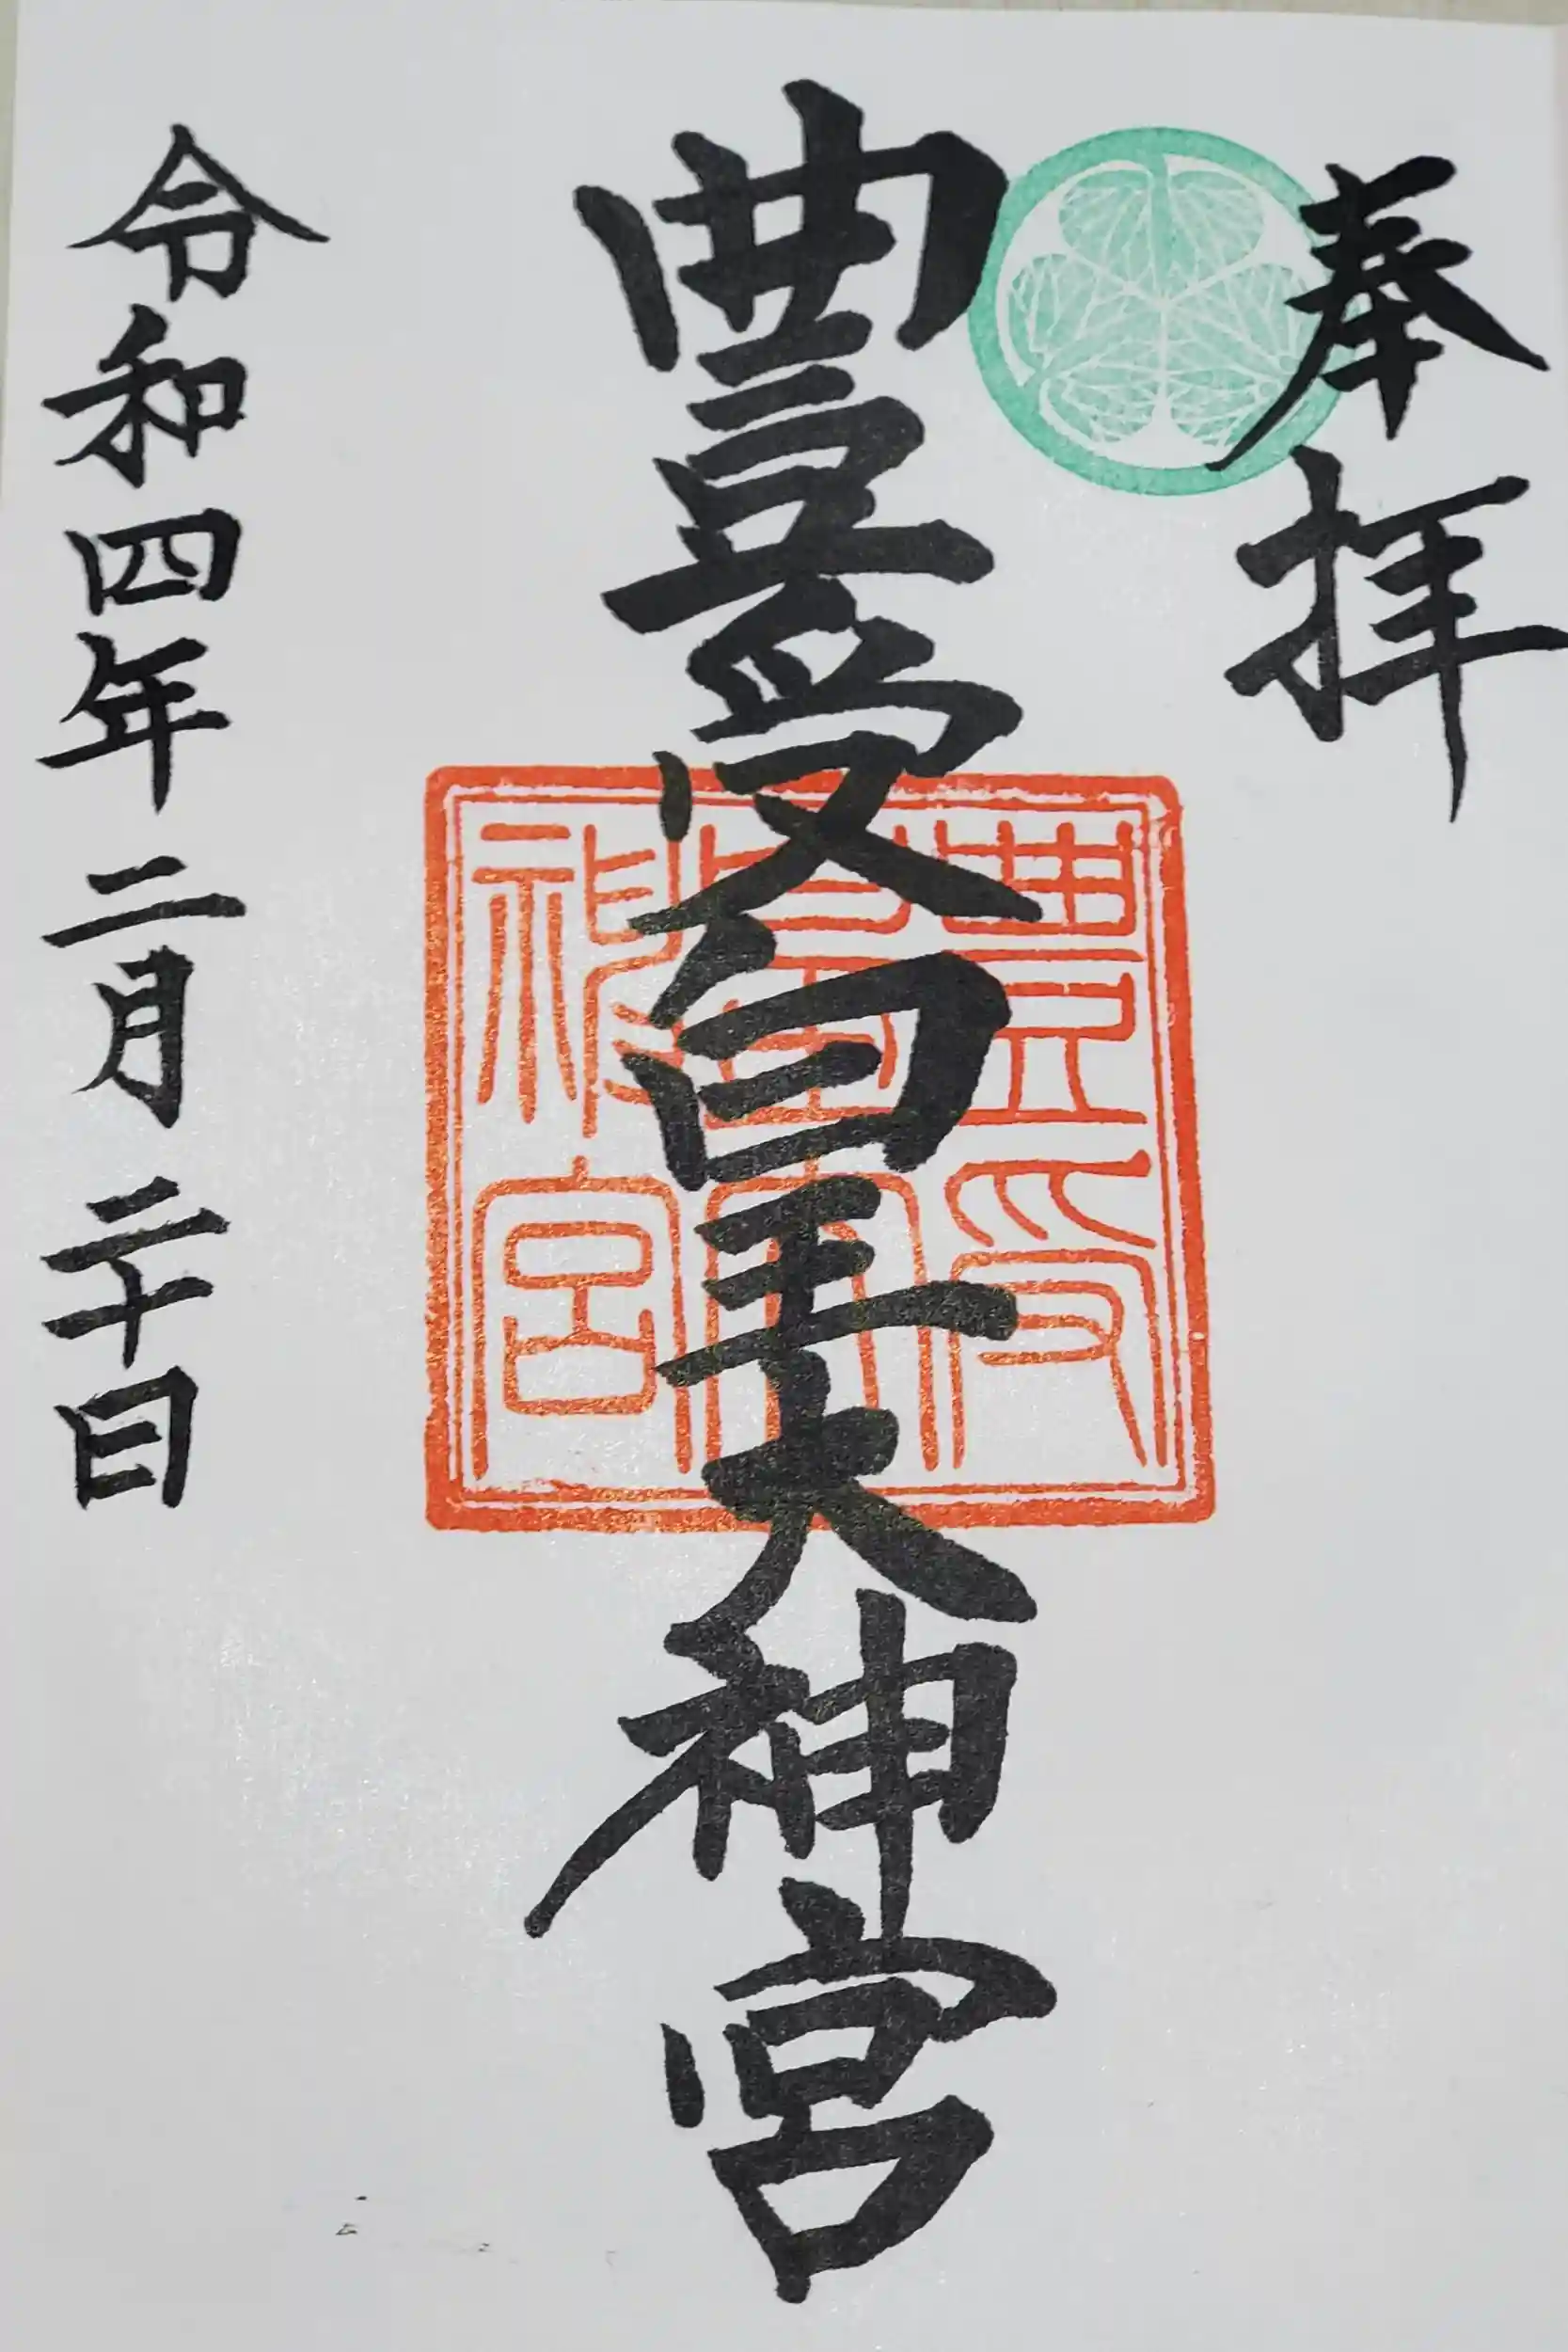 奉拝
豊受皇大神宮
豊受
皇大
神宮
令和四年二月二十日